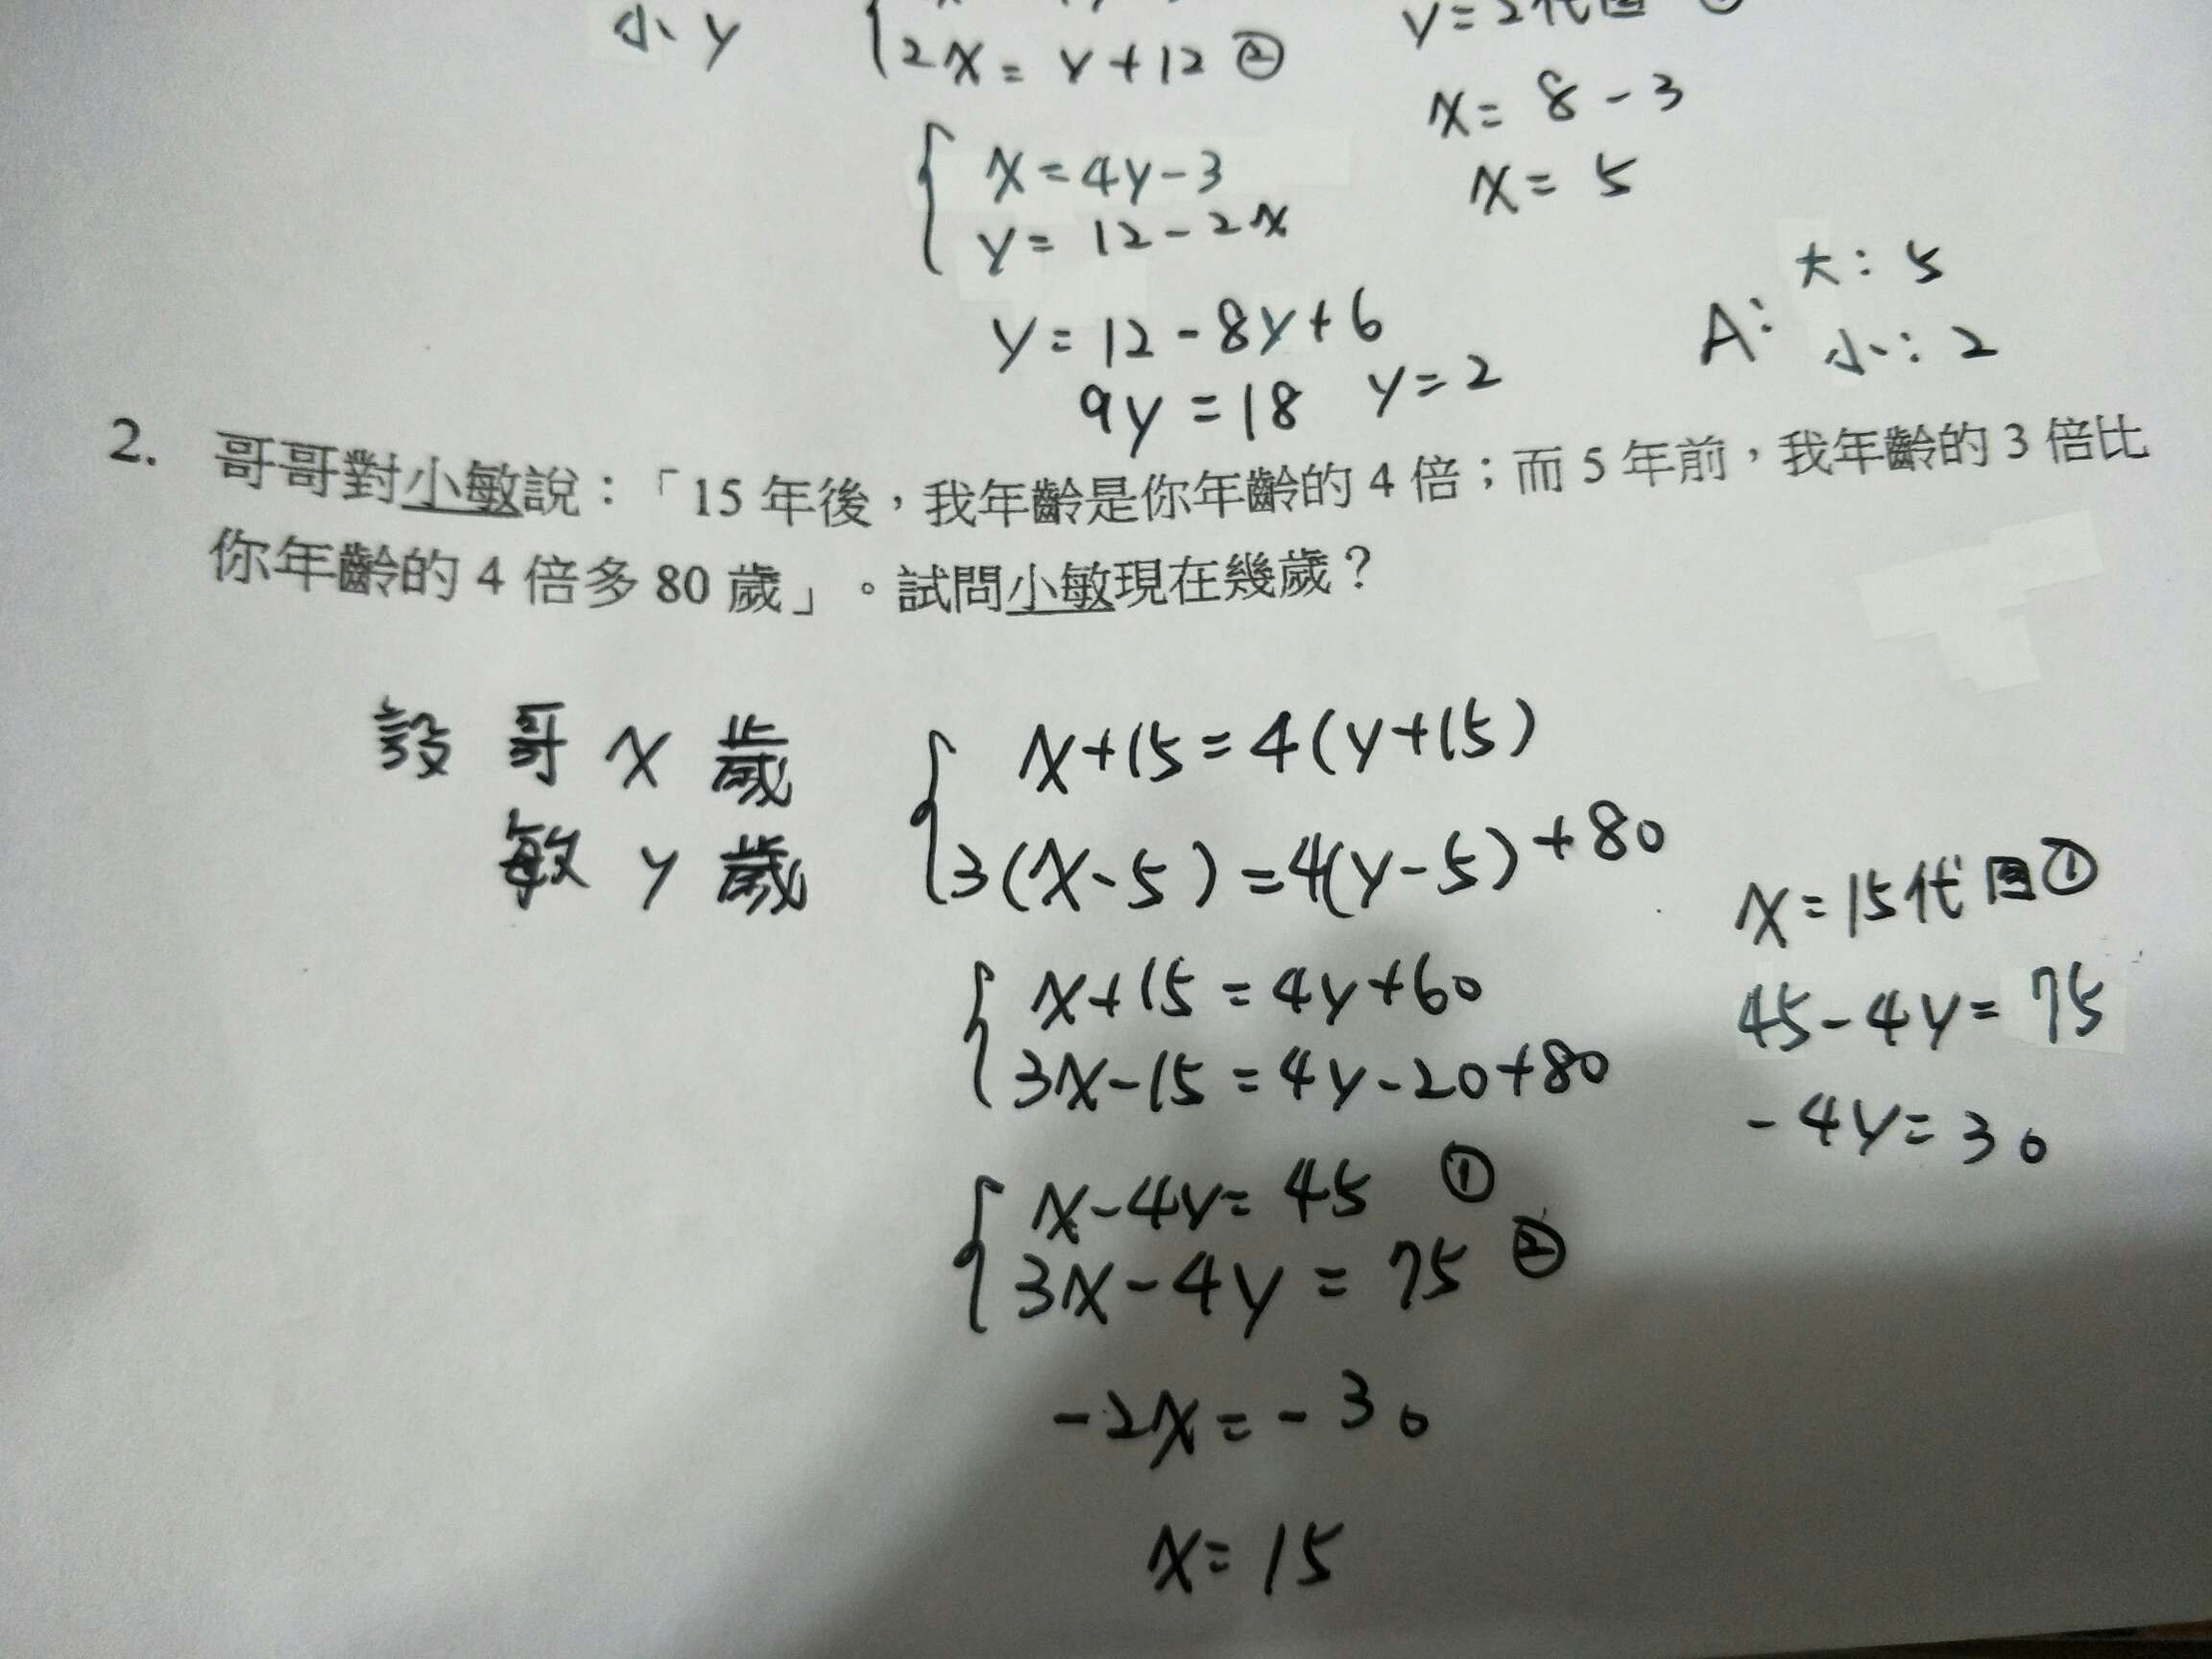 小 y
2x = y + 12 ②
x = 8 - 3
x = 4y - 3
x = 5
y = 12 - 2x
大: 5
y = 12 - 8y + 6
A: 小: 2
9y = 18 y = 2
2. 哥哥對小敏說:「15 年後,我年齡是你年齡的 4 倍;而 5 年前,我年齡的 3 倍比
你年齡的 4 倍多 80 歲」。試問小敏現在幾歲?
設 哥 x 歲
敏 y 歲
x + 15 = 4(y + 15)
3(x - 5) = 4(y - 5) + 80
x + 15 = 4y + 60
3x - 15 = 4y - 20 + 80
x - 4y = 45 ①
3x - 4y = 75 ②
-2x = -30
x = 15
x = 15代回①
45 - 4y = 75
-4y = 30